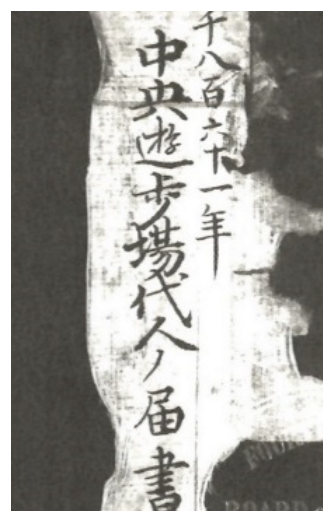 千八百六十一年
中央遊歩場代人ノ届書
BOARD